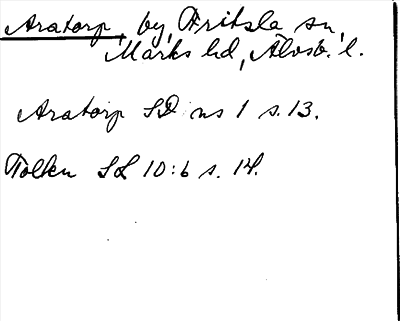 Aratorp, by, Fritsla sn,
Marks hd, Älvsb. l.
Aratorp SD ns 1 s. 13.
Tolken SL 10:6 s. 14.